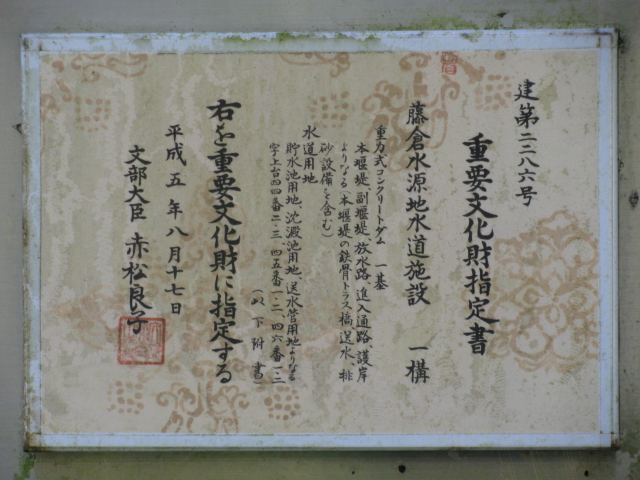 建第二二八六号
重要文化財指定書
藤倉水源地水道施設 一構
重力式コンクリートダム 一基
本堰堤、副堰堤、放水路、進入通路、護岸
よりなる(本堰堤の鉄骨トラス橋、送水、排
砂設備を含む)
水道用地
貯水池用地、沈澱池用地、送水管用地よりなる
字上台四四番二・三、四五番一・二、四六番一・二
(以下附書)
右を重要文化財に指定する
平成五年八月十七日
文部大臣 赤松良子